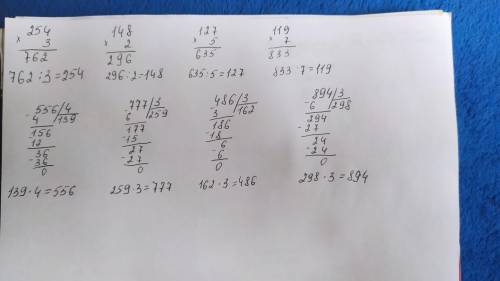 × 254
3
762
762:3=254
× 148
2
296
296:2=148
× 127
5
635
635:5=127
× 119
7
833
833:7=119
- 556/4
4 139
156
12
- 36
36
0
139·4=556
- 777/3
6 259
177
-15
27
-27
0
259·3=777
- 486/3
3 162
186
-18
-6
6
0
162·3=486
- 894/3
6 298
294
-27
24
-24
0
298·3=894